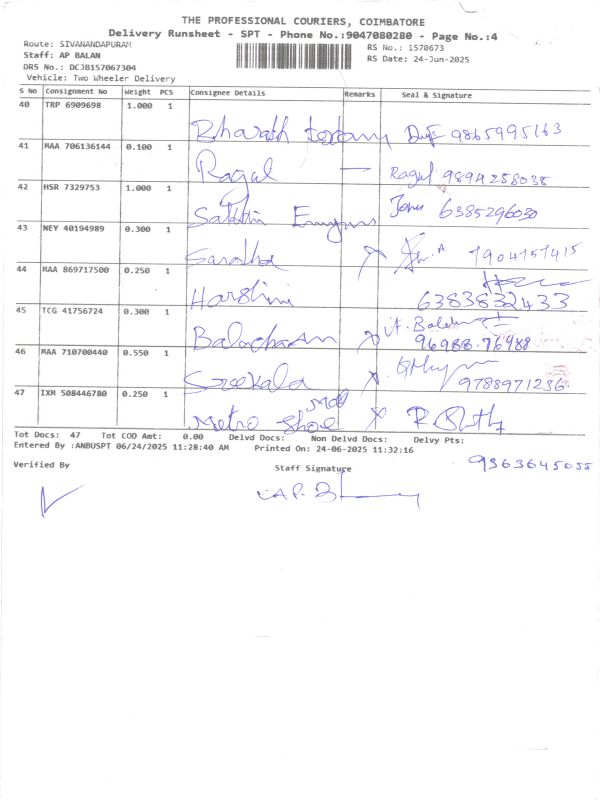 THE PROFESSIONAL COURIERS, COIMBATORE
Delivery Runsheet - SPT - Phone No.:9047080280 - Page No.:4
Route: SIVANANDAPURAM
RS No.: 1570673
Staff: AP BALAN
RS Date: 24-Jun-2025
DRS No.: DCJB157067304
Vehicle: Two Wheeler Delivery
S No Consignment No Weight PCS Consignee Details Remarks Seal & Signature
40 TRP 6909698 1.000 1
Bharath 9865995163
41 MAA 706136144 0.100 1
Ragul — Ragul 9894258035
42 HSR 7329753 1.000 1
6385296030
43 NEY 40194989 0.300 1
Saratha 7904757415
44 MAA 869717500 0.250 1
Harshini 6383832433
45 TCG 41756724 0.300 1
96988.76988
46 MAA 710700440 0.550 1
Sreekala 9788971236
47 IXM 508446780 0.250 1
Metro Shoe
Tot Docs: 47 Tot COD Amt: 0.00 Delvd Docs: Non Delvd Docs: Delvy Pts:
Entered By :ANBUSPT 06/24/2025 11:28:40 AM Printed On: 24-06-2025 11:32:16
9363645055
Verified By Staff Signature